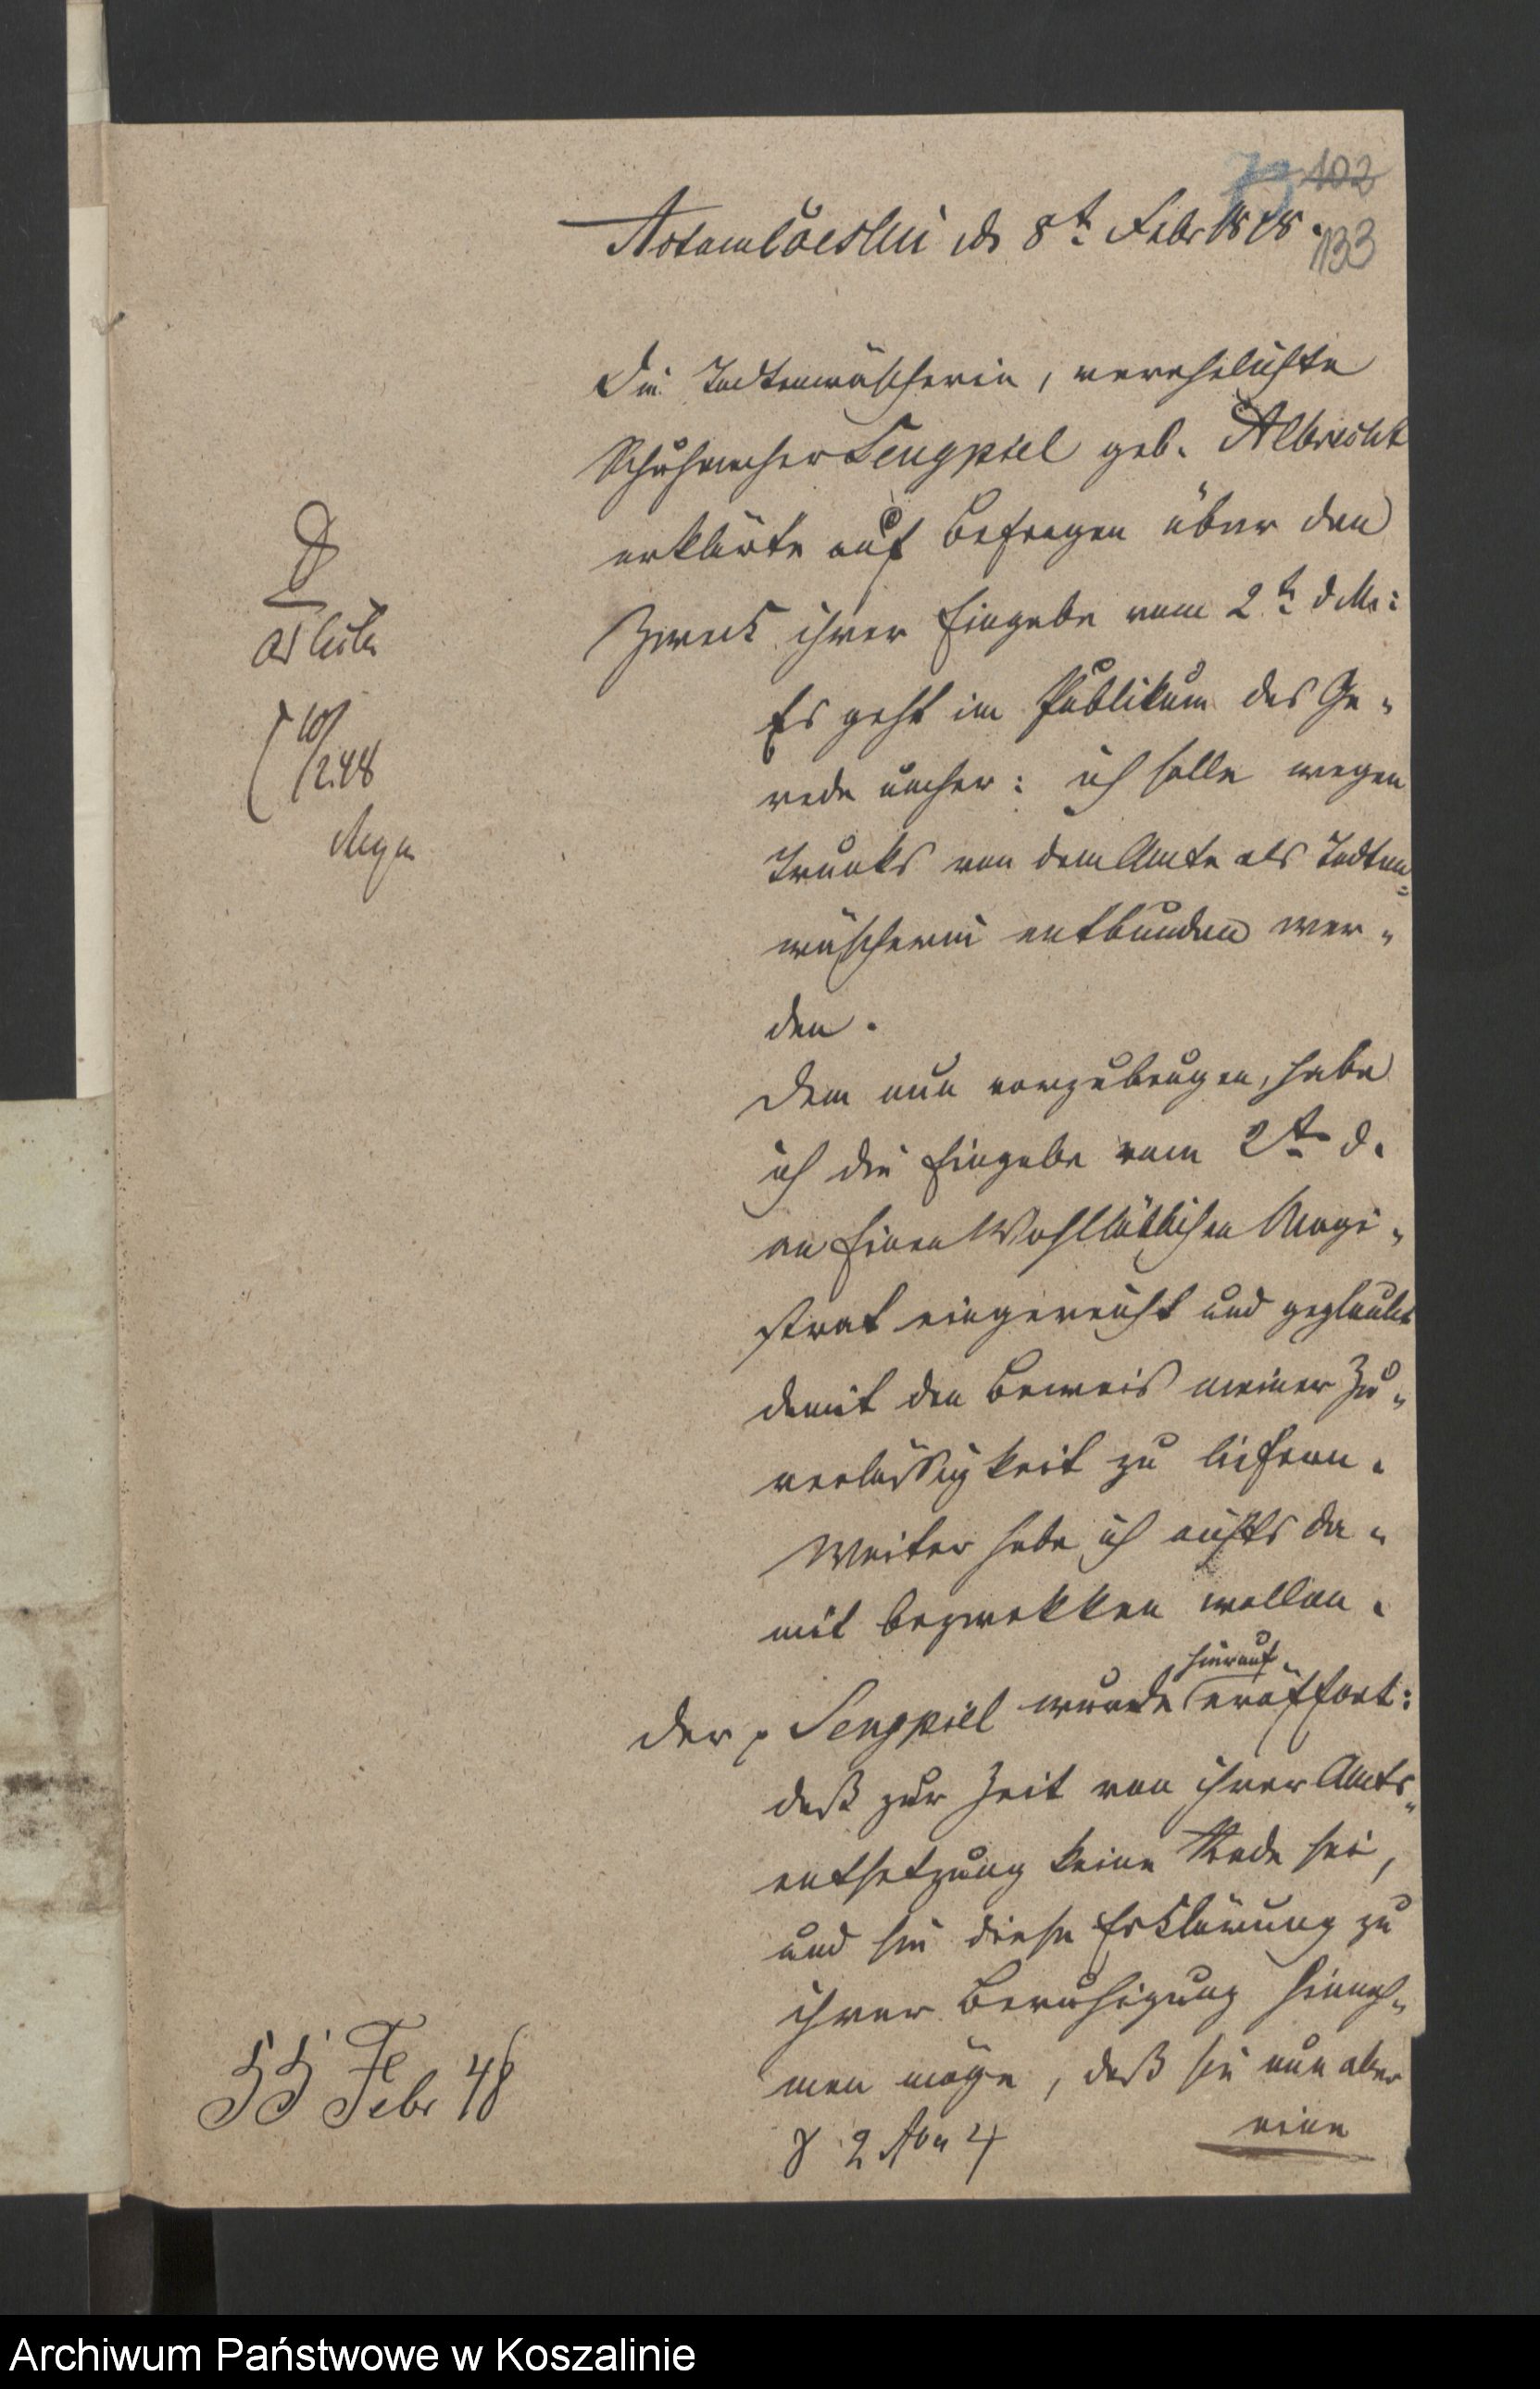 73 102
Actum Coeslin d 8t Febr 1848.
133
Die Todtenwäscherin, verehelichte
Schuhmacher Sengpiel geb. Albrecht
erklärte auf Befragen über den
Zweck ihrer Eingabe vom 2t d Mts:
Es geht im Publikum das Ge-
rede umher: ich solle wegen
Trunks von dem Amte als Todten-
wäscherin entbunden wer-
den.
Dem nun vorzubeugen, habe
ich die Eingabe vom 2ten d.
an Einen Wohllöblichen Magi-
strat eingereicht und geglaubt
damit den Beweis meiner Zu-
verlässigkeit zu liefern.
Weiter habe ich nichts da-
mit bezwekken wollen.
Der p Sengpiel wurde hierauf eröffnet:
daß zur Zeit von ihrer Amts-
entsetzung keine Rede sei,
und sie diese Erklärung zu
ihrer Beruhigung hinneh-
men möge, daß sie nun aber
eine
10/2 48
55 Febr 48
Archiwum Państwowe w Koszalinie